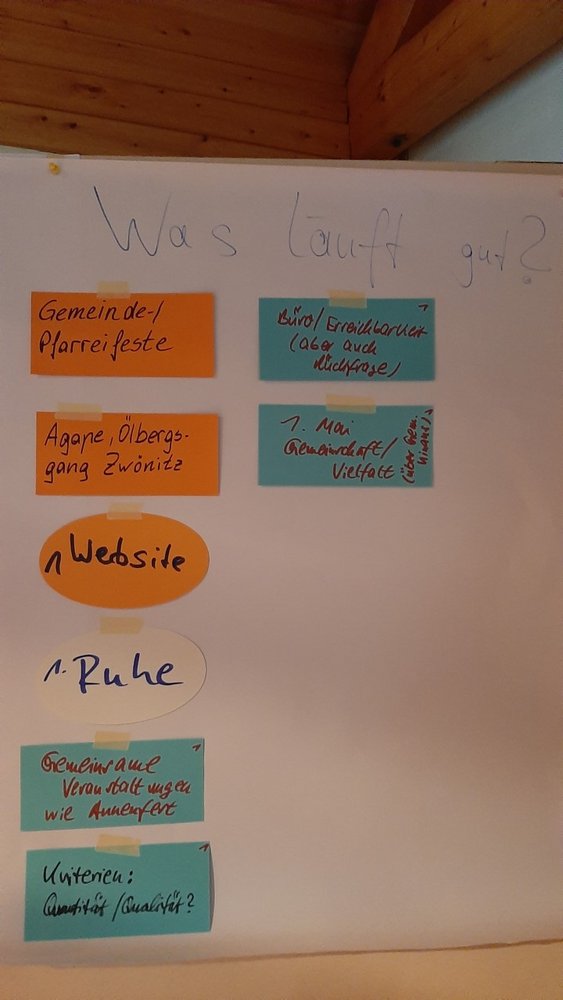 Was läuft gut?
Gemeinde-/
Pfarreifeste
Agape, Ölbergs-
gang Zwönitz
1 Website
1. Ruhe
1
Gemeinsame
Veranstaltungen
wie Annenfest
1
Kriterien:
Quantität / Qualität?
1
Büro/Erreichbarkeit
(aber auch
Rückfrage)
1. Mai
Gemeinschaft/
Vielfalt
(über Gem.
hinaus)
1